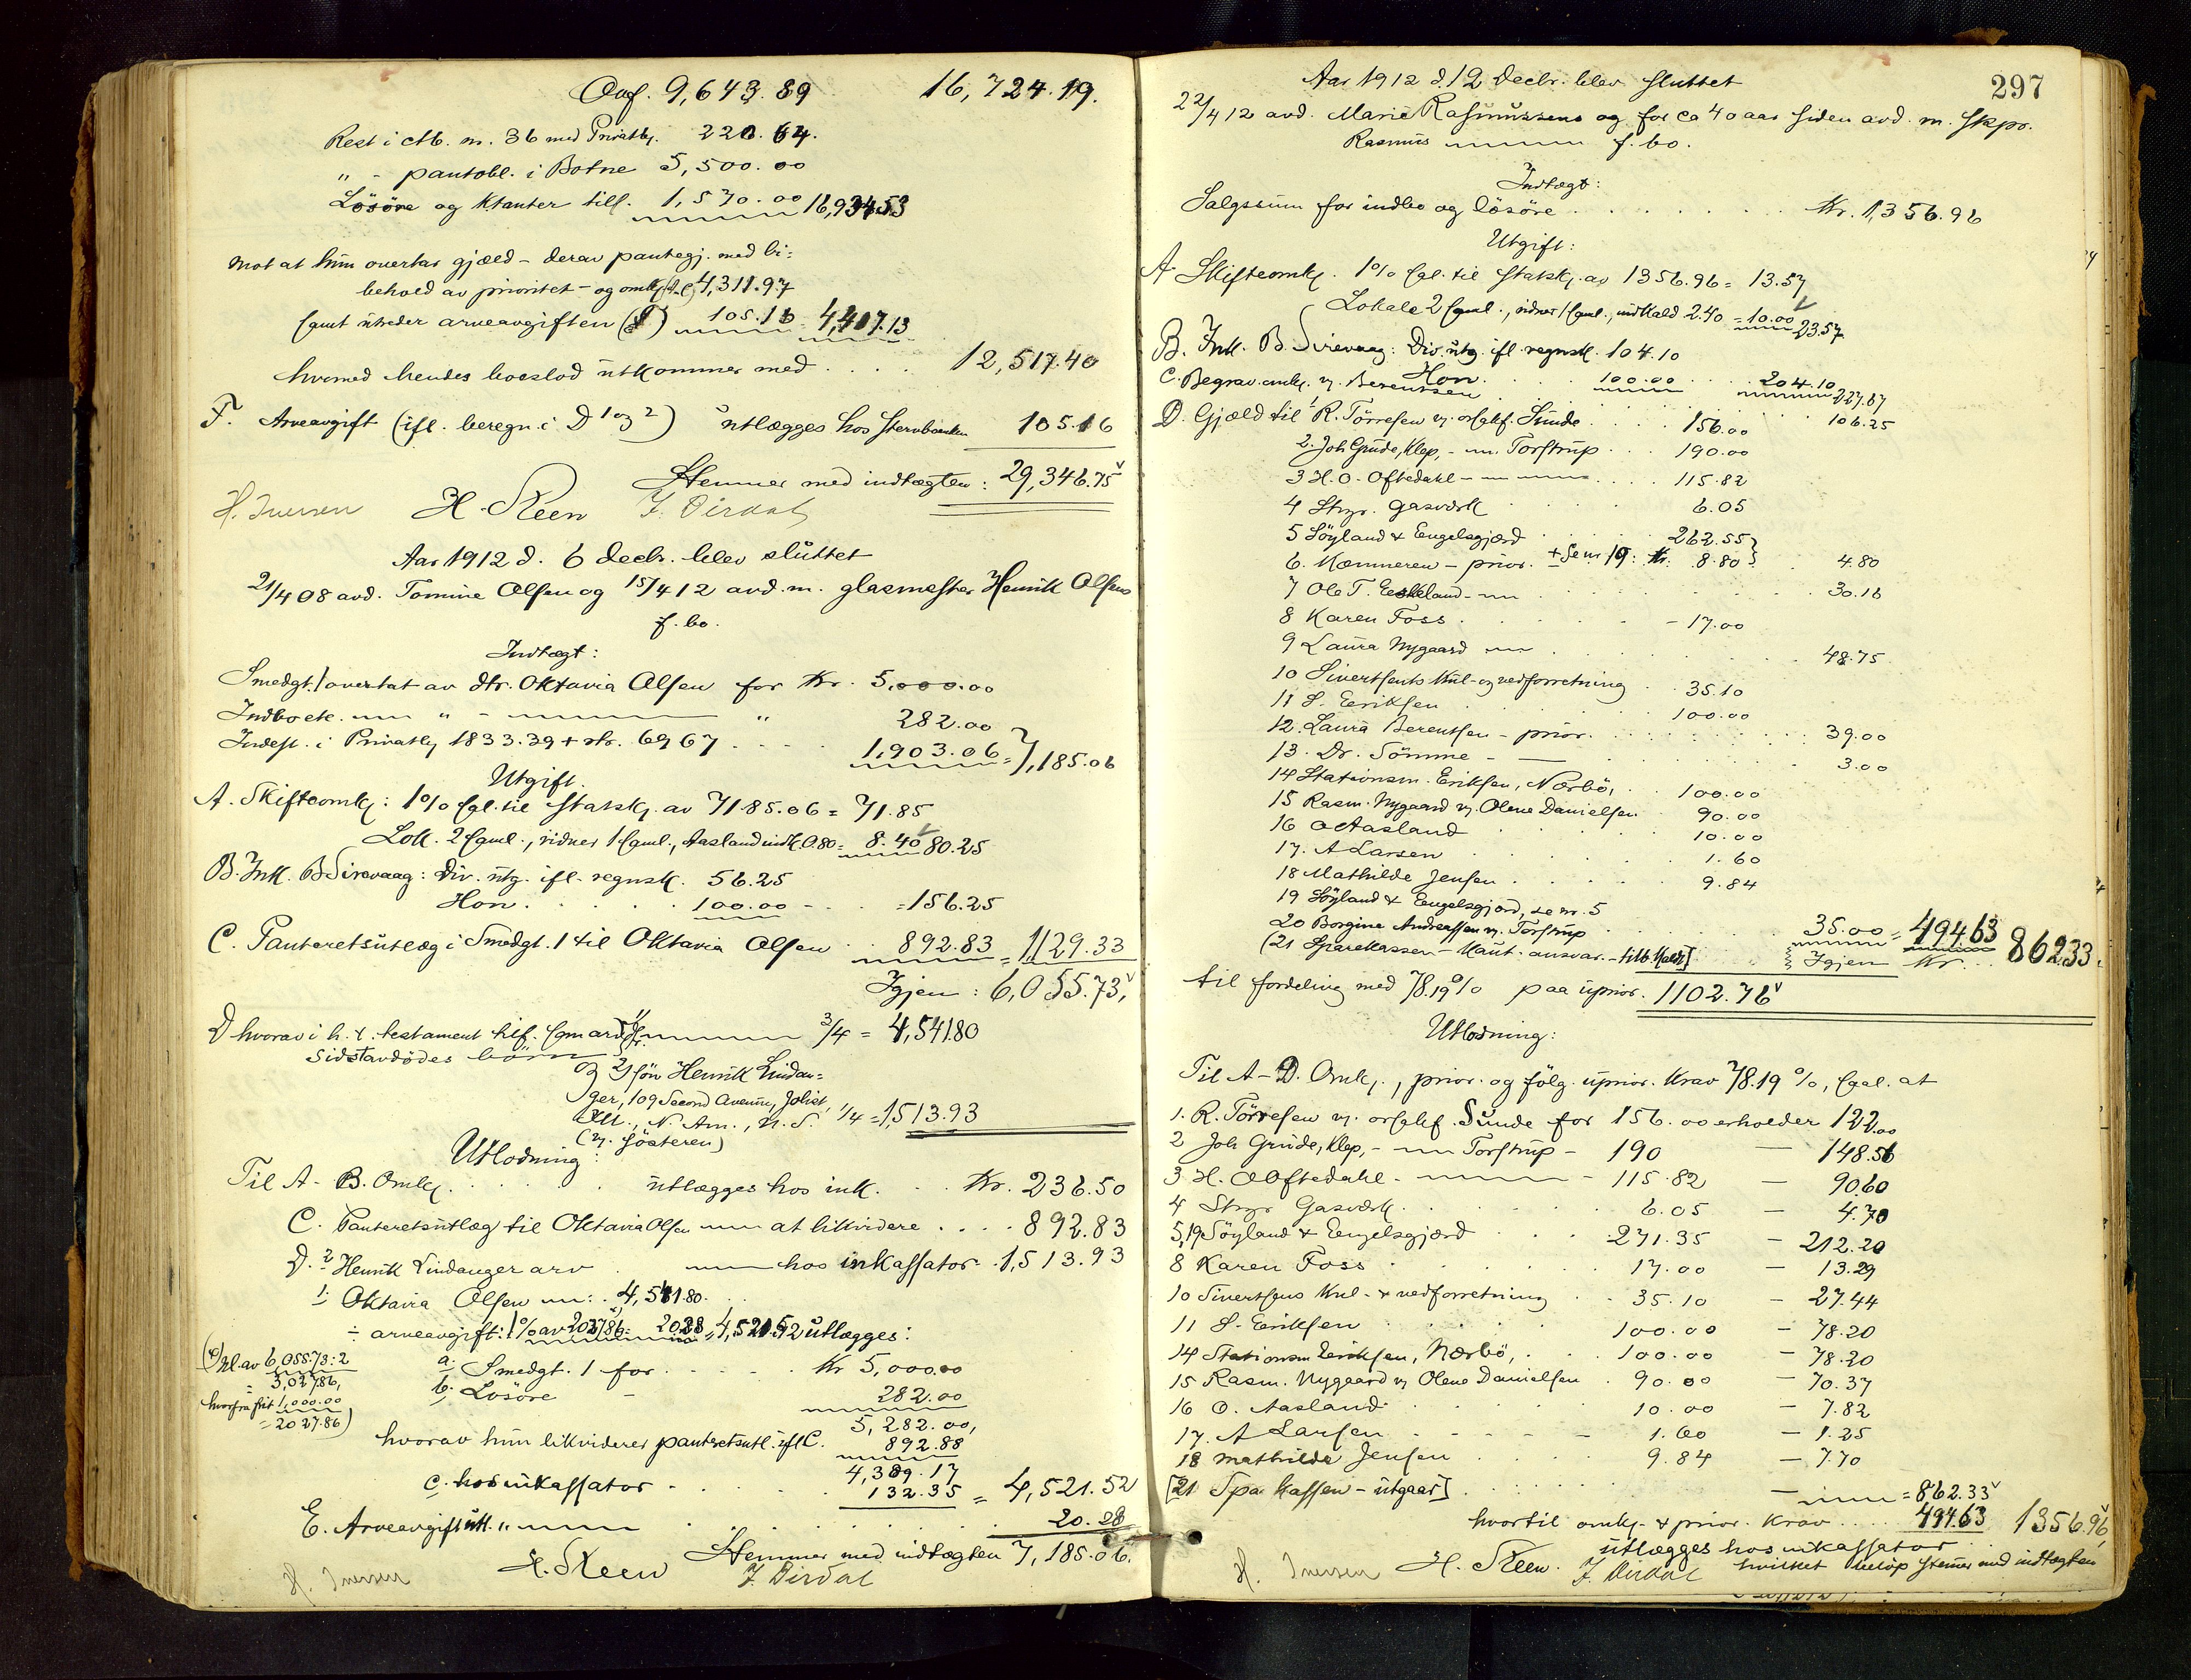 Ovf. 9,643.89 16,724.19.
Rest i Ktb. nr. 36 med Privatbj. 220.64.
" - pantobl. i Botne 5,500.00
Lösöre og Ktanter till. 1,570.00 16,934.53
mot at hun overtar gjæld - derav pantegj. med bi=
behold av prioritet - og omk. (A-C) 4,311.97
samt utreder arveavgiften (F) 105.16 = 4,417.13
hvormed hendes boeslod utkommer med . . . . 12,517.40
F. Arveavgift (ifl. beregn. i D 1 og 2) utlægges hos stervboenken 105.16
Stemmer med indtægten: 29,346.75
H. Iversen H. Steen J. Dirdal
Aar 1912 d. 6 decbr. blev sluttet
21/4 08 avd. Tomine Olsen og 15/4 12 avd. m. glasmester Henrik Olsens
f. bo.
Indtægt:
Smedgt. 1 overtat av dtr. Oktavia Olsen for Kr. 5,000.00
Indbo etc. " - " 282.00
Indest. i Privatbj 1833.39 + rtr. 69 67 . . . . 1,903.06 = 7,185.06
Utgift.
A. Skifteomk: 1% sgl. til statskj. av 7185.06 = 71.85
Lok. 2 saml., vidner 1 saml., Aasland indk. 0.80 = 8.40 80.25
B. Ink. B Sirevaag: Div. utg. ifl. regnsk. 56.25
Hon. . . . . 100.00 - . . =156.25
C. Panteretsutlæg i Smedgt. 1 til Oktavia Olsen . . 892.83 = 1129.33
Igjen: 6,055.73,
D hvorav i h. t. testament tilf. 3/4 = 4,541.80
sidstavdödes börn
og 2) sön Henrik Lindan=
ger, 109 Second Avenue, Joliet,
Ill., N. Am., U. S. 1/4 = 1,513.93
(v. søsteren)
Utlodning:
Til A - B. Omk. . . . . utlægges hos ink. . . Kr. 236.50
C. Panteretsutlæg til Oktavia Olsen at likvidere . . . . 892.83
D. 2 Henrik Lindanger arv . hos inkassator . 1,513.93
1. Oktavia Olsen 4,541.80.
÷ arveavgift: 1% av 2027.86 = 20.28 = 4,521.52 utlægges:
(x) Hl. av 6,055.73 : 2
= 3,027.86,
hvorfra frit 1,000.00
= 2027.86)
a. Smedgt. 1 for . . . . Kr 5,000.00
b. Lösöre - 282.00
5,282.00,
hvorav hun likviderer panteretsutl. ifl C. 892.83
4,389.17
c. hos inkassator . . . 132.35 = 4,521.52
E. Arveavgift utl. " . . . . . 20.28
Stemmer med indtægten 7,185.06.
H. Iversen H. Steen J. Dirdal
297
Aar 1912 d. 12 decbr. blev sluttet
22/4 12 avd. Marie Rasmussens og for ca 40 aar siden avd. m. skpr.
Rasmus f. bo.
Indtægt:
Salgssum for indbo og lösöre . . . . . . . Kr. 1,356.96
Utgift:
A Skifteomk. 1% sgl. til statskj. av 1356.96 = 13.57
Lokale 2 saml., vidner 1 saml., indkald 2.40 = 10.00 23.57
B. Ink. B. Sirevaag: Div. utg. ifl. regnsk. 104.10
Hon. . . . 100.00 . . . 204.10 227.67
C. Begrav.omk. v. Berentsen . . . . . 106.25
D. Gjæld til 1 R. Törresen v. orsakf. Sunde . . . . 156.00
2. Joh Grude, Klep, - Torstrup . . . 190.00
3 H. O. Oftedahl - . . . . 115.82
4 Stvgr. gasværk . . . . 6.05
5 Söyland & Engelsgjærd . . . . 262.55
6. Kæmneren - prior. + se nr 19: Kr. 8.80 . 4.80
7 Ole T. Eskeland - . . . . . 30.16
8 Karen Foss . . . . . - 17.00
9 Laura Nygaard . . . . . 48.75
10 Sivertsens Kul- og vedforretning . . 35.10
11 S. Eeriksen . . . . . 100.00
12. Laura Berentsen - prior. . . . . . 39.00
13. Dr. Sömme - . . . . . 3.00
14 Stationsm. Eriksen, Nærbö, . . 100.00
15 Rasm. Nygaard v. Olene Danielsen . 90.00
16 O Aasland . . . . 10.00
17. A Larsen . . . . 1.60
18 Mathilde Jensen . . . . 9.84
19 Höyland & Engelsgjærd, se nr. 5
20 Borgine Andreassen v. Torstrup . . . . 35.00 = 494.63 862.33.
(21 Sparekassen - Kaut. ansvar. - tilbkaldt] Igjen Kr.
til fordeling med 78.19% paa uprior. 1102.76
Utlodning:
Til A - D. Omk., prior. og følg. uprior. Krav 78.19%, saal. at
1. R. Törresen v. orsakf. Sunde for 156.00 erholder 122.00
2 Joh Grude, Klep, - Torstrup - 190 — 148.56
3 H. O Oftedahl - - 115.82 — 90.60
4 Stvgr Gasværk . . . . 6.05 — 4.70
5,19 Söyland & Engelsgjærd . . . 271.35 - 212.20
8 Karen Foss . . . . 17.00 — 13.29
10 Sivertsens Kul- & vedforretning . . 35.10 - 27.44
11 S. Eriksen . . . . 100.00 - 78.20
14 Stationsm Eeriksen, Nærbö, . . 100.00 - 78.20
15 Rasm. Nygaard v Olene Danielsen . 90.00 - 70.37
16 O. Aasland . . . . 10.00 - 7.82
17. A Larsen - - - - 1.60 - 1.25
18 Mathilde Jensen . . . . 9.84 — 7.70
[21 Spa kassen - utgaar] . . . . = 862.33
hvortil omk. & prior. Krav . . . . 494.63 1356.96,
utlægges hos inkassator
hvilket belöp stemer med indtægten
H. Iversen H. Steen. J. Dirdal